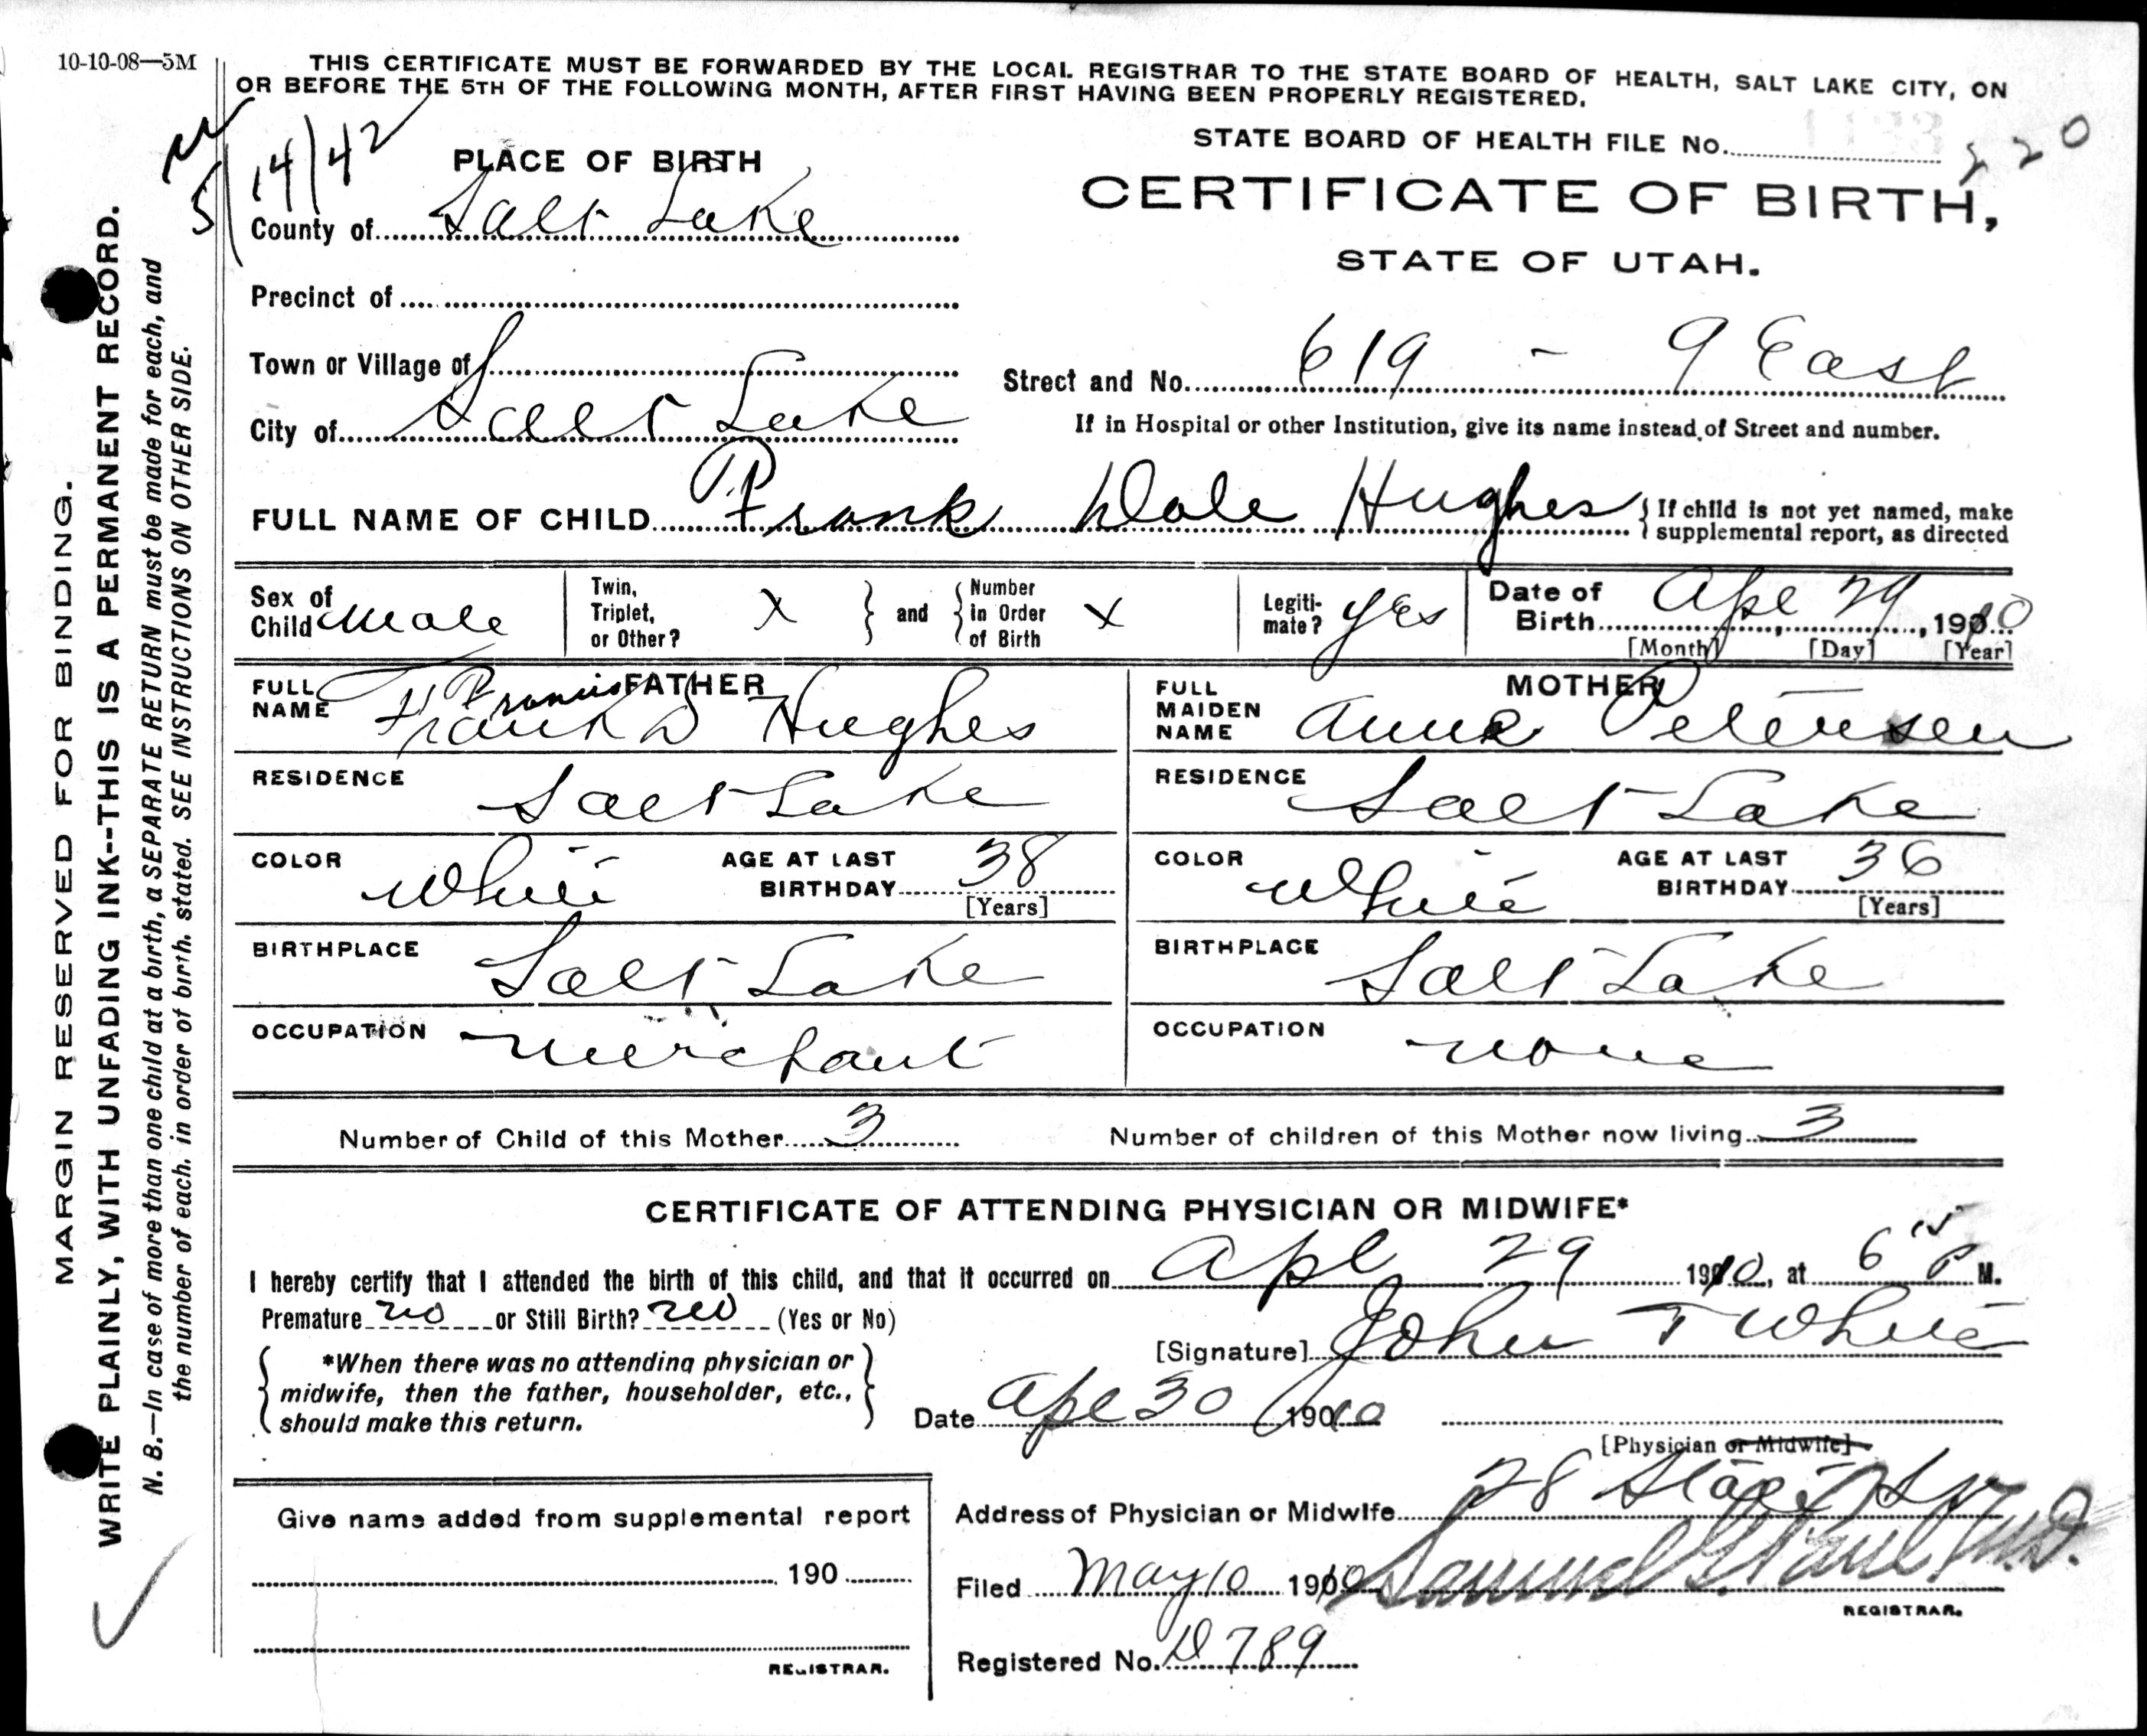 10-10-08—5M
THIS CERTIFICATE MUST BE FORWARDED BY THE LOCAL REGISTRAR TO THE STATE BOARD OF HEALTH, SALT LAKE CITY, ON
OR BEFORE THE 5TH OF THE FOLLOWING MONTH, AFTER FIRST HAVING BEEN PROPERLY REGISTERED.
5/14/42
STATE BOARD OF HEALTH FILE No. 220
PLACE OF BIRTH
CERTIFICATE OF BIRTH,
STATE OF UTAH.
County of Salt Lake
Precinct of
Town or Village of
Street and No. 619 - 9 East
City of Salt Lake
If in Hospital or other Institution, give its name instead of Street and number.
FULL NAME OF CHILD Frank Dale Hughes { If child is not yet named, make
supplemental report, as directed
Sex of Child Male
Twin, Triplet, or Other? X } and { Number in Order of Birth X
Legitimate? yes
Date of Birth Apl 29, 1910
[Month] [Day] [Year]
FATHER
FULL NAME Francis
Frank D Hughes
MOTHER
FULL MAIDEN NAME Anna Petersen
RESIDENCE Salt Lake
RESIDENCE Salt Lake
COLOR White AGE AT LAST BIRTHDAY 38 [Years]
COLOR White AGE AT LAST BIRTHDAY 36 [Years]
BIRTHPLACE Salt Lake
BIRTHPLACE Salt Lake
OCCUPATION Merchant
OCCUPATION None
Number of Child of this Mother 3 Number of children of this Mother now living 3
CERTIFICATE OF ATTENDING PHYSICIAN OR MIDWIFE*
I hereby certify that I attended the birth of this child, and that it occurred on Apl 29 1910, at 6 15 P M.
Premature no or Still Birth? no (Yes or No)
[Signature] John T White
{ *When there was no attending physician or }
midwife, then the father, householder, etc.,
should make this return.
Date Apl 30 1910
[Physician or Midwife]
Address of Physician or Midwife 28 State St
Give name added from supplemental report
190
REGISTRAR.
Filed May 10 1910 Samuel G. Paul M.D.
REGISTRAR.
Registered No. D789
MARGIN RESERVED FOR BINDING.
WRITE PLAINLY, WITH UNFADING INK--THIS IS A PERMANENT RECORD.
N. B.—In case of more than one child at a birth, a SEPARATE RETURN must be made for each, and
the number of each, in order of birth, stated. SEE INSTRUCTIONS ON OTHER SIDE.